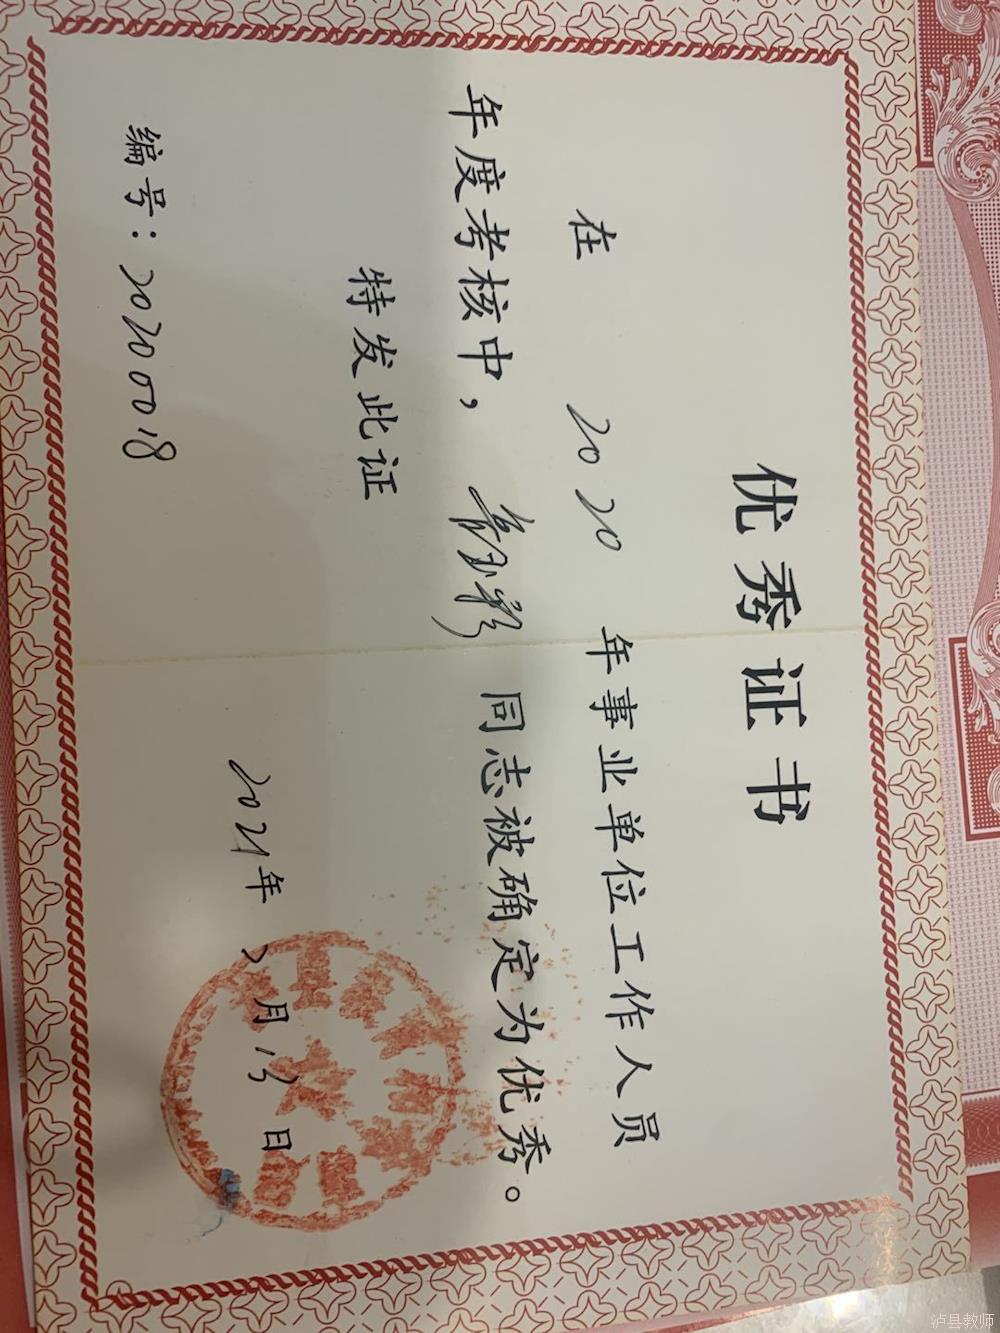 优秀证书
在 2020 年事业单位工作人员
年度考核中， 同志被确定为优秀。
特发此证
编号：2020018
2021年 月 日
泸县教师